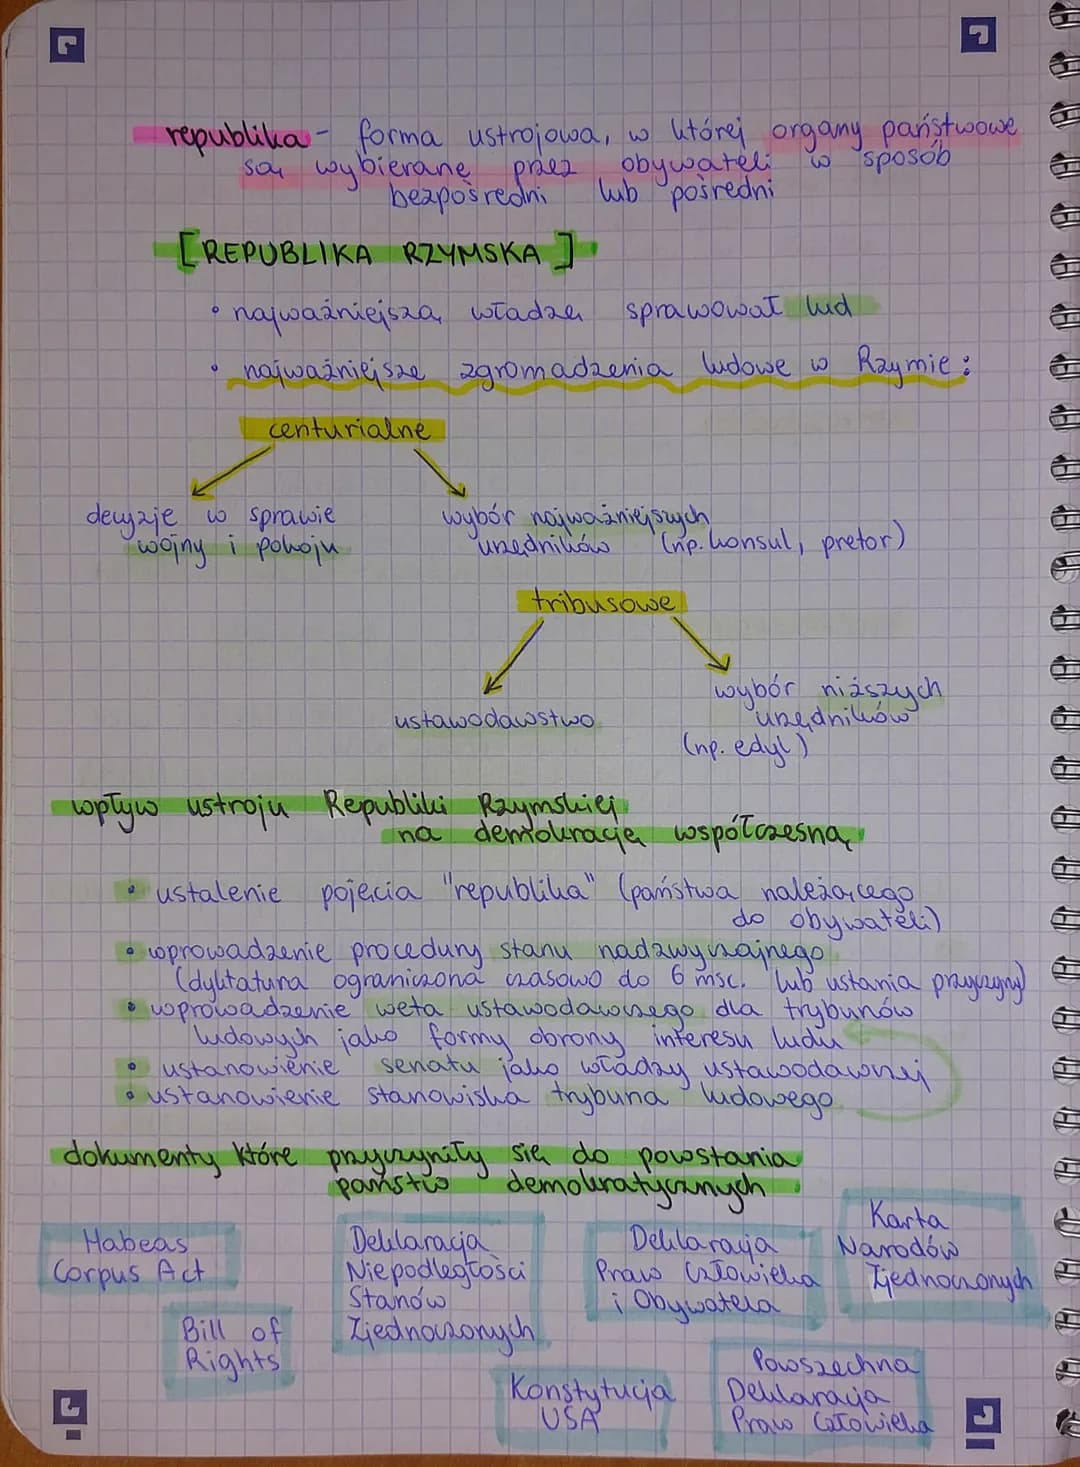 republika - forma ustrojowa, w której organy państwowe
są wybierane przez obywateli w sposób
bezpośredni lub pośredni
[REPUBLIKA RZYMSKA]
• najważniejszą władzę sprawował lud
• najważniejsze zgromadzenia ludowe w Rzymie:
centurialne
decyzje w sprawie
wojny i pokoju
wybór najważniejszych
urzędników (np. konsul, pretor)
tribusowe
ustawodawstwo
wybór niższych
urzędników
(np. edyl)
wpływ ustroju Republiki Rzymskiej
na demokrację współczesną
• ustalenie pojęcia "republika" (państwa należącego
do obywateli)
• wprowadzenie procedury stanu nadzwyczajnego
(dyktatura ograniczona czasowo do 6 msc. lub ustania przyczyny)
• wprowadzenie weta ustawodawczego dla trybunów
ludowych jako formy obrony interesu ludu
• ustanowienie senatu jako władzy ustawodawczej
• ustanowienie stanowiska trybuna ludowego
dokumenty które przyczyniły się do powstania
państw demokratycznych
Habeas
Corpus Act
Bill of
Rights
Deklaracja
Niepodległości
Stanów
Zjednoczonych
Deklaracja
Praw Człowieka
i Obywatela
Karta
Narodów
Zjednoczonych
Konstytucja
USA
Powszechna
Deklaracja
Praw Człowieka